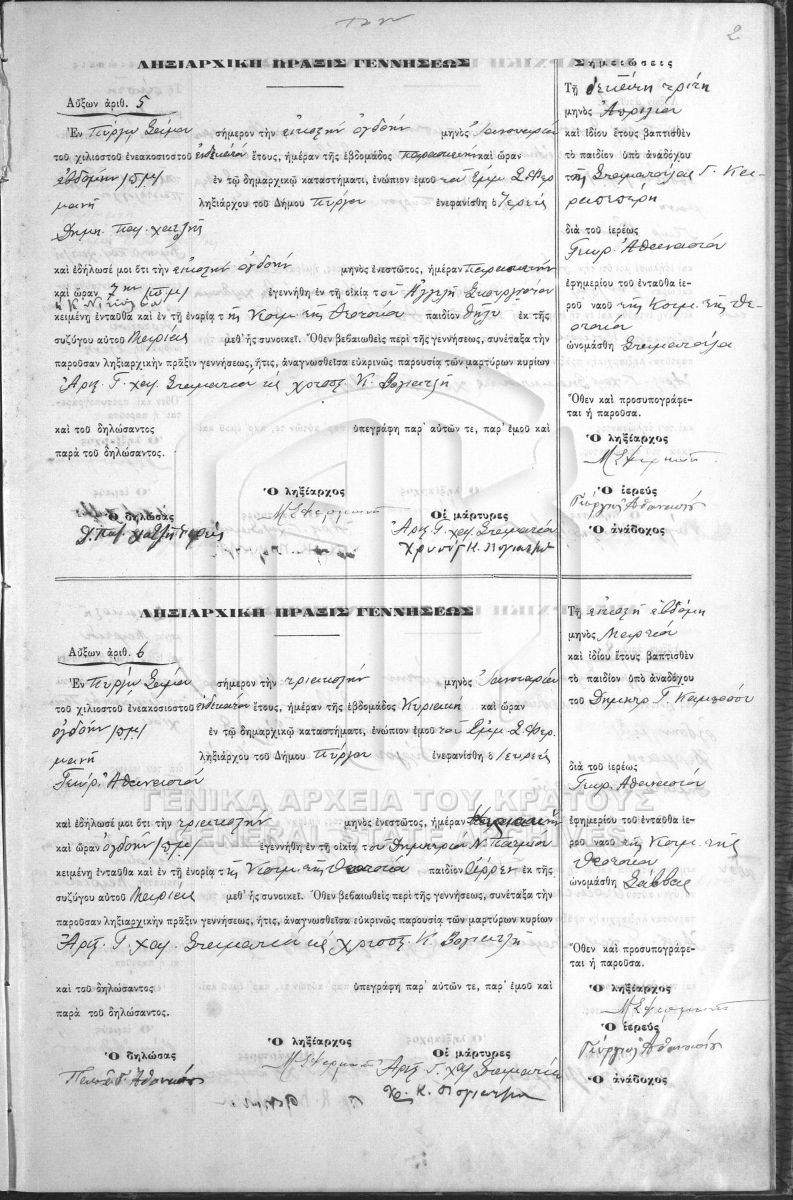 2
ΛΗΞΙΑΡΧΙΚΗ ΠΡΑΞΙΣ ΓΕΝΝΗΣΕΩΣ
Αὔξων ἀριθ. 5
Ἐν Πύργῳ Σάμου σήμερον τὴν εἰκοστὴν ὀγδόην μηνὸς Ἰανουαρίου
τοῦ χιλιοστοῦ ἐνεακοσιοστοῦ ἑνδεκάτου ἔτους, ἡμέραν τῆς ἑβδομάδος παρασκευὴν καὶ ὥραν
ἑβδόμην (π.μ) ἐν τῷ δημαρχικῷ καταστήματι, ἐνώπιον ἐμοῦ τοῦ Ἐμμ. Σ. Φερ
μανῆ ληξιάρχου τοῦ Δήμου Πύργου ἐνεφανίσθη ὁ Ἱερεὺς
Δημ. Παπ. χατζῆς
καὶ ἐδήλωσέ μοι ὅτι τὴν εἰκοστὴν ὀγδόην μηνὸς ἐνεστῶτος, ἡμέραν παρασκευὴν
καὶ ὥραν 7ην (π.μ) ἐγεννήθη ἐν τῇ οἰκίᾳ τοῦ
κειμένῃ ἐνταῦθα καὶ ἐν τῇ ἐνορίᾳ τῆς Κοιμ. τῆς Θεοτόκου παιδίον θῆλυ ἐκ τῆς
συζύγου αὐτοῦ Μαρίας μεθ᾽ ἧς συνοικεῖ. Ὅθεν βεβαιωθεὶς περὶ τῆς γεννήσεως, συνέταξα τὴν
παροῦσαν ληξιαρχικὴν πρᾶξιν γεννήσεως, ἥτις, ἀναγνωσθεῖσα εὐκρινῶς παρουσίᾳ τῶν μαρτύρων κυρίων
Ἀριστ. Γ. χατ. Σταματίου κ Χρυσ. Κ. Βογιατζῆ
καὶ τοῦ δηλώσαντος ὑπεγράφη παρ᾽ αὐτῶν τε, παρ᾽ ἐμοῦ καὶ
παρὰ τοῦ δηλώσαντος.
Ὁ ληξίαρχος
Ὁ δηλώσας Μ Σ Φερμανῆς Οἱ μάρτυρες
Δ. Παπ. χατζῆ ἱερεὺς Ἀριστ. Γ. χατ. Σταματίου
Χρυσ. Κ. Βογιατζῆ
Σημειώσεις
Τῇ δεκάτῃ τρίτῃ
μηνὸς Ἀπριλίου
καὶ ἰδίου ἔτους βαπτισθὲν
τὸ παιδίον ὑπὸ ἀναδόχου
τῆς Σταματούλας Γ.
διὰ τοῦ ἱερέως
Γεωρ. Ἀθανασίου
ἐφημερίου τοῦ ἐνταῦθα ἱε-
ροῦ ναοῦ τῆς Κοιμ. τῆς Θε-
οτόκου
ὠνομάσθη Σταματούλα
Ὅθεν καὶ προσυπογράφε-
ται ἡ παροῦσα.
Ὁ ληξίαρχος
Μ Σ Φερμανῆς
Ὁ ἱερεύς
Γεώργιος Ἀθανασίου
Ὁ ἀνάδοχος
ΓΕΝΙΚΑ ΑΡΧΕΙΑ ΤΟΥ ΚΡΑΤΟΥΣ
GENERAL STATE ARCHIVES
ΛΗΞΙΑΡΧΙΚΗ ΠΡΑΞΙΣ ΓΕΝΝΗΣΕΩΣ
Αὔξων ἀριθ. 6
Ἐν Πύργῳ Σάμου σήμερον τὴν τριακοστὴν μηνὸς Ἰανουαρίου
τοῦ χιλιοστοῦ ἐνεακοσιοστοῦ ἑνδεκάτου ἔτους, ἡμέραν τῆς ἑβδομάδος Κυριακὴν καὶ ὥραν
ὀγδόην (π.μ) ἐν τῷ δημαρχικῷ καταστήματι, ἐνώπιον ἐμοῦ τοῦ Ἐμμ. Σ. Φερ.
μανῆ ληξιάρχου τοῦ Δήμου Πύργου ἐνεφανίσθη ὁ ἱερεὺς
Γεώρ. Ἀθανασίου
καὶ ἐδήλωσέ μοι ὅτι τὴν τριακοστὴν μηνὸς ἐνεστῶτος, ἡμέραν Κυριακὴν
καὶ ὥραν ὀγδόην (π.μ) ἐγεννήθη ἐν τῇ οἰκίᾳ τοῦ Δημητρίου Ν.
κειμένῃ ἐνταῦθα καὶ ἐν τῇ ἐνορίᾳ τῆς Κοιμ. τῆς Θεοτόκου παιδίον ἄρρεν ἐκ τῆς
συζύγου αὐτοῦ Μαρίας μεθ᾽ ἧς συνοικεῖ. Ὅθεν βεβαιωθεὶς περὶ τῆς γεννήσεως, συνέταξα τὴν
παροῦσαν ληξιαρχικὴν πρᾶξιν γεννήσεως, ἥτις, ἀναγνωσθεῖσα εὐκρινῶς παρουσίᾳ τῶν μαρτύρων κυρίων
Ἀριστ. Γ. χατ. Σταματίου κ Χρυσ. Κ. Βογιατζῆ
καὶ τοῦ δηλώσαντος ὑπεγράφη παρ᾽ αὐτῶν τε, παρ᾽ ἐμοῦ καὶ
παρὰ τοῦ δηλώσαντος.
Ὁ ληξίαρχος
Ὁ δηλώσας Μ Σ Φερμανῆς Οἱ μάρτυρες
Ἀθανασίου Ἀριστ. Γ. χατ. Σταματίου
Χρ. Κ. Βογιατζῆ
Τῇ εἰκοστῇ ἑβδόμῃ
μηνὸς Μαρτίου
καὶ ἰδίου ἔτους βαπτισθὲν
τὸ παιδίον ὑπὸ ἀναδόχου
τοῦ Δημητρ. Γ.
διὰ τοῦ ἱερέως
Γεωρ. Ἀθανασίου
ἐφημερίου τοῦ ἐνταῦθα ἱε-
ροῦ ναοῦ τῆς Κοιμ. τῆς
Θεοτόκου
ὠνομάσθη Σάββας
Ὅθεν καὶ προσυπογράφε-
ται ἡ παροῦσα.
Ὁ ληξίαρχος
Μ Σ Φερμανῆς
Ὁ ἱερεύς
Γεώργιος Ἀθανασίου
Ὁ ἀνάδοχος